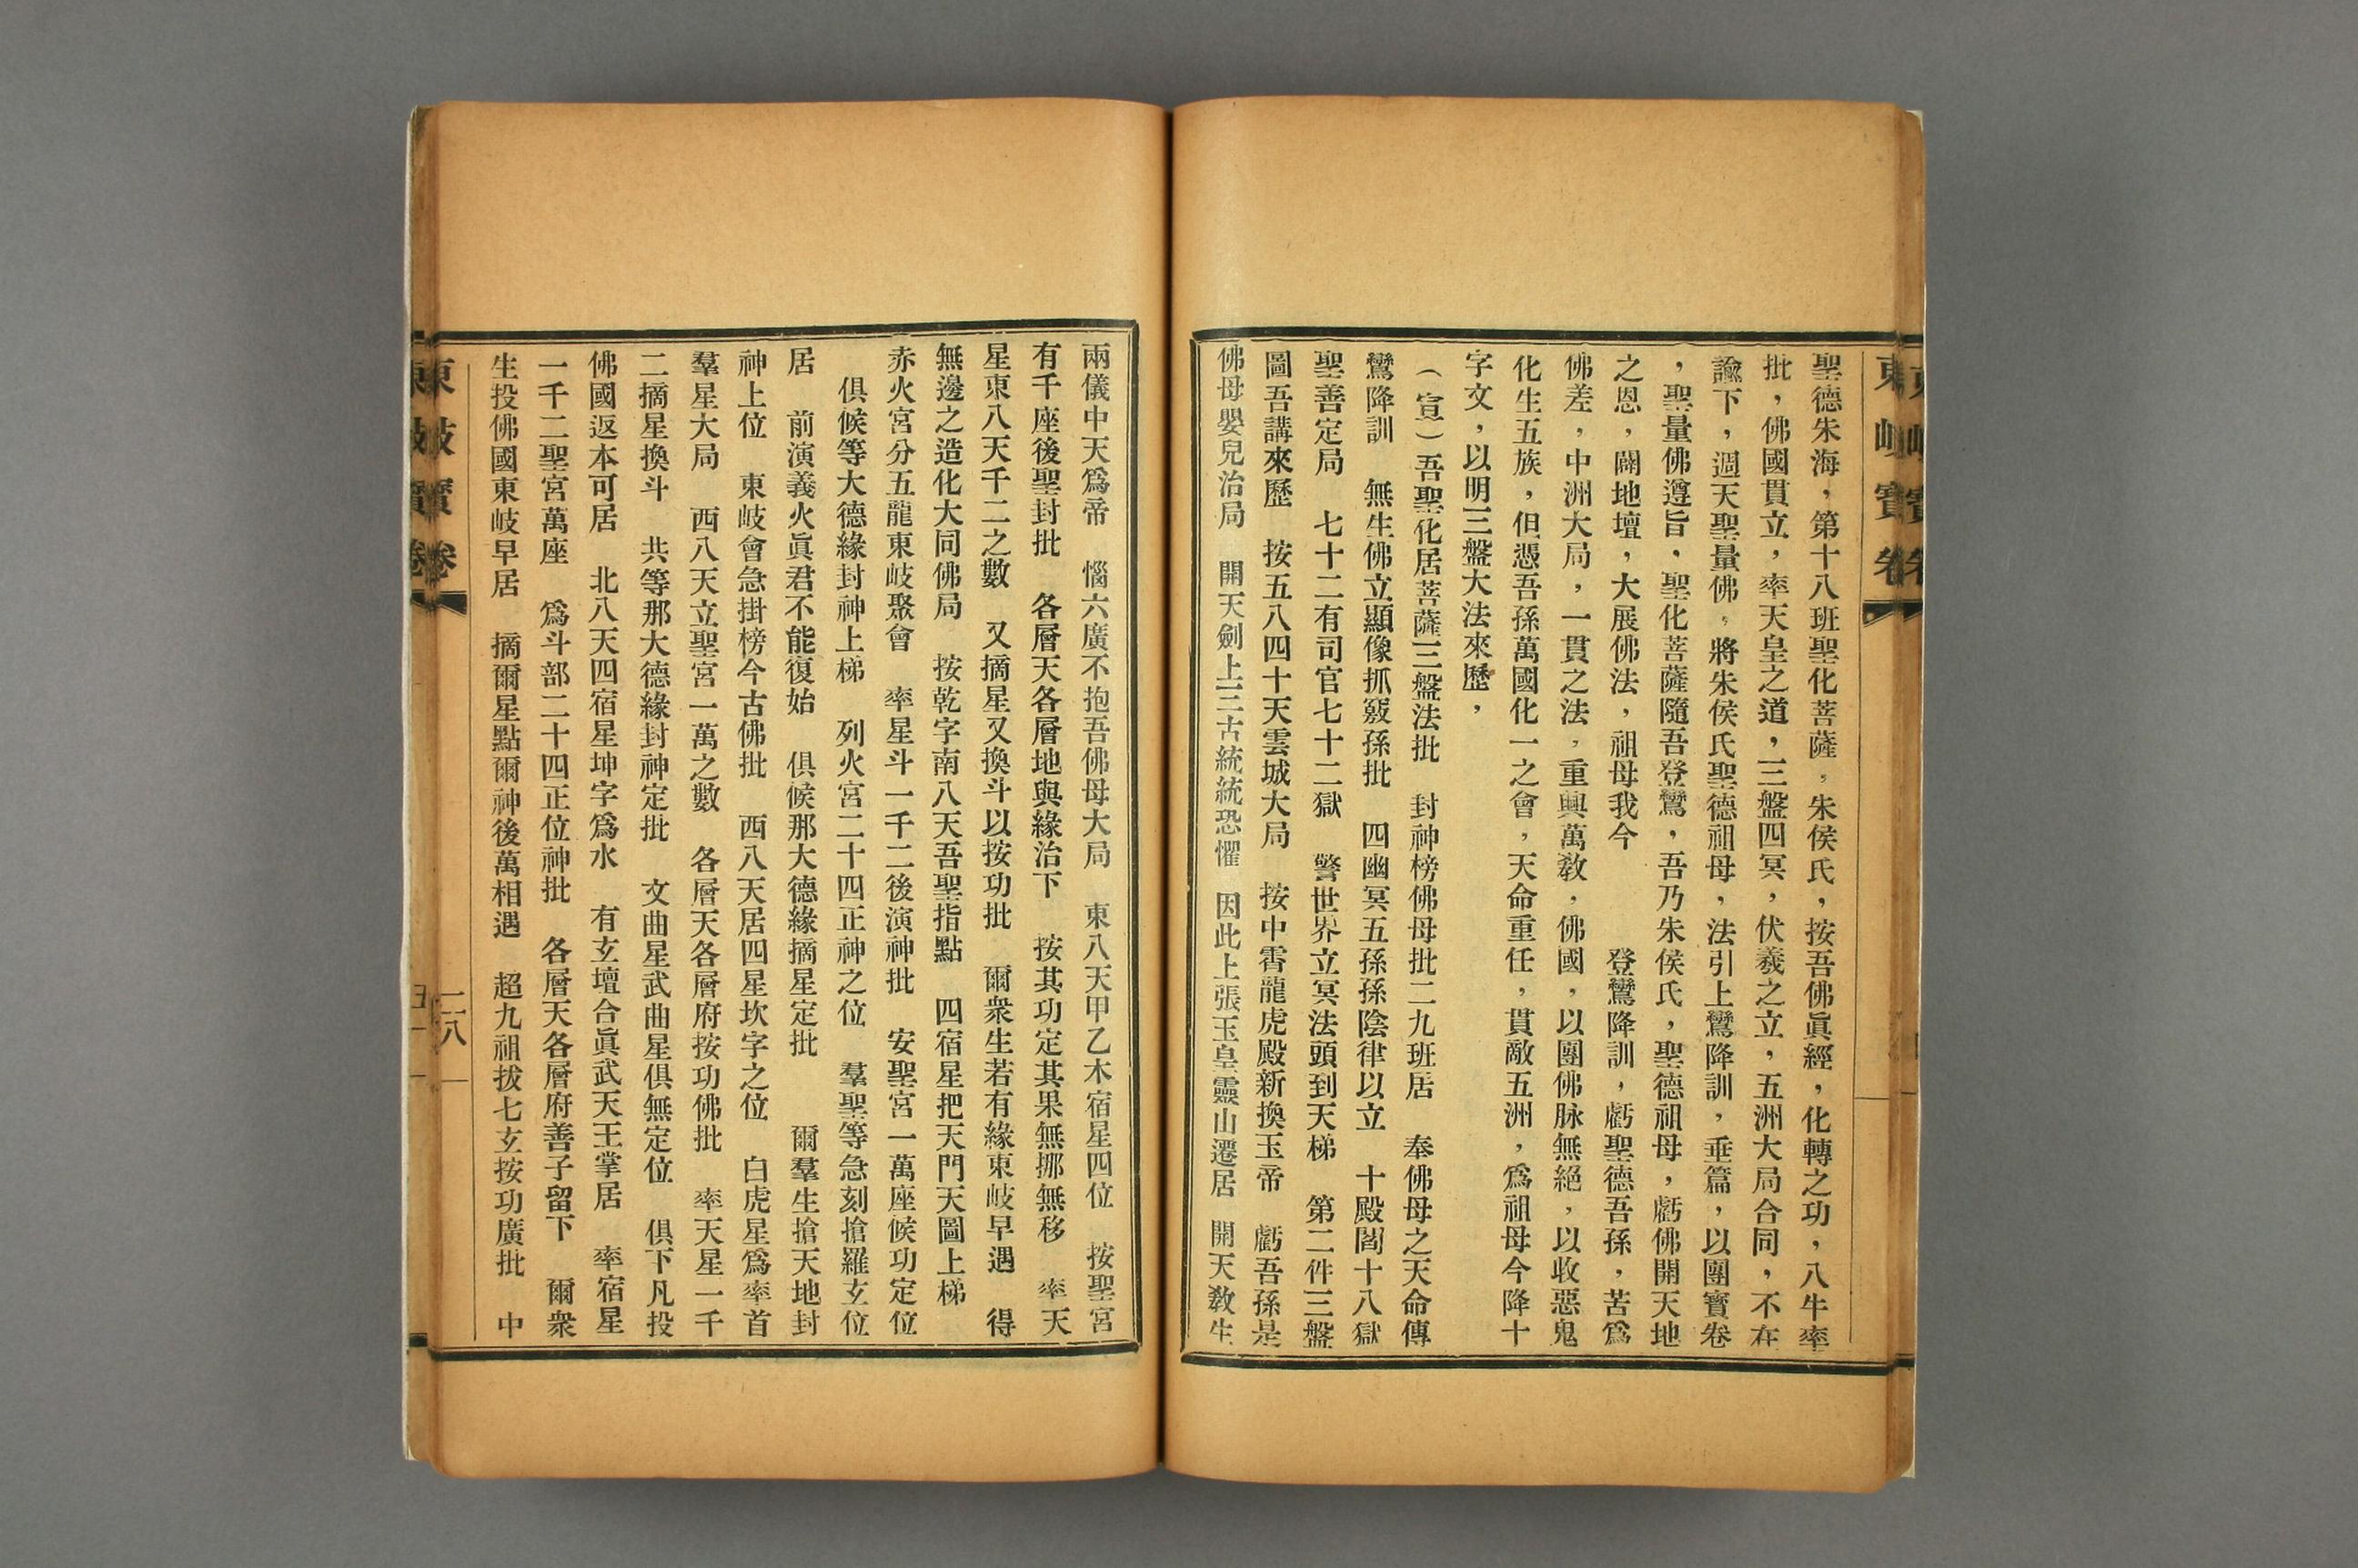 東岐寶卷
聖德朱海，第十八班聖化菩薩，朱侯氏，按吾佛眞經，化轉之功，八牛率
批，佛國貫立，率天皇之道，三盤四冥，伏羲之立，五洲大局合同，不在
諭下，週天聖量佛，將朱侯氏聖德祖母，法引上鸞降訓，垂篇，以團寶卷
，聖量佛遵旨，聖化菩薩隨吾登鸞，吾乃朱侯氏，聖德祖母，虧佛開天地
之恩，闢地壇，大展佛法，祖母我今　　　登鸞降訓，虧聖德吾孫，苦爲
佛差，中洲大局，一貫之法，重興萬敎，佛國，以團佛脉無絕，以收惡鬼
化生五族，但憑吾孫萬國化一之會，天命重任，貫敵五洲，爲祖母今降十
字文，以明三盤大法來歷，
（宣）吾聖化居菩薩三盤法批　封神榜佛母批二九班居　奉佛母之天命傳
鸞降訓　無生佛立顯像抓竅孫批　四幽冥五孫孫陰律以立　十殿閻十八獄
聖善定局　七十二有司官七十二獄　警世界立冥法頭到天梯　第二件三盤
圖吾講來歷　按五八四十天雲城大局　按中霄龍虎殿新換玉帝　虧吾孫是
佛母嬰兒治局　開天劍上三古統統恐懼　因此上張玉皇靈山遷居　開天敎生
兩儀中天爲帝　惱六廣不抱吾佛母大局　東八天甲乙木宿星四位　按聖宮
有千座後聖封批　各層天各層地與緣治下　按其功定其果無挪無移　率天
星東八天千二之數　又摘星又換斗以按功批　爾衆生若有緣東岐早遇　得
無邊之造化大同佛局　按乾字南八天吾聖指點　四宿星把天門天圖上梯
赤火宮分五龍東岐聚會　率星斗一千二後演神批　安聖宮一萬座候功定位
俱候等大德緣封神上梯　列火宮二十四正神之位　羣聖等急刻搶羅玄位
居　前演義火眞君不能復始　俱候那大德緣摘星定批　爾羣生搶天地封
神上位　東岐會急掛榜今古佛批　西八天居四星坎字之位　白虎星爲率首
羣星大局　西八天立聖宮一萬之數　各層天各層府按功佛批　率天星一千
二摘星換斗　共等那大德緣封神定批　文曲星武曲星俱無定位　俱下凡投
佛國返本可居　北八天四宿星坤字爲水　有玄壇合眞武天王掌居　率宿星
一千二聖宮萬座　爲斗部二十四正位神批　各層天各層府善子留下　爾衆
生投佛國東岐早居　摘爾星點爾神後萬相遇　超九祖拔七玄按功廣批　中
東岐寶卷
二八